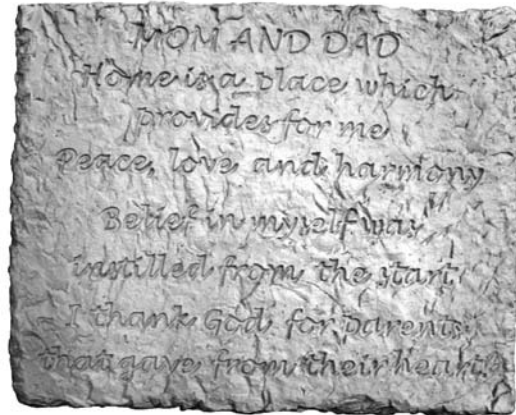 MOM AND DAD
Home is a place which
provides for me
Peace, love and harmony
Belief in myself was
instilled from the start
I thank God for parents
that gave from their heart